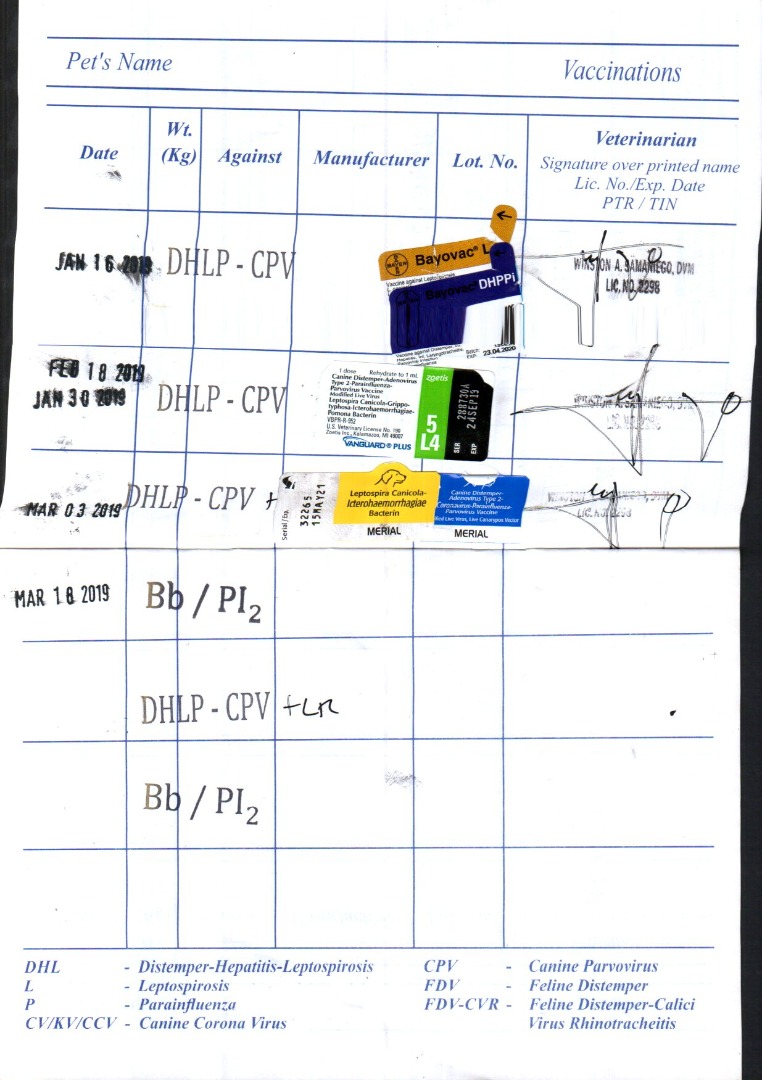 Pet's Name
Vaccinations
Date
Wt.
(Kg)
Against
Manufacturer
Lot. No.
Veterinarian
Signature over printed name
Lic. No./Exp. Date
PTR / TIN
JAN 16 2019
DHLP - CPV
BAYER
Bayovac® L
Bayovac® DHPPi
23.04.2020
WINSTON A. SAMANIEGO, DVM
LIC. NO. 2298
FEB 18 2019
JAN 30 2019
DHLP - CPV
1 dose Rehydrate to 1 mL
Canine Distemper-Adenovirus
Type 2-Parainfluenza-
Parvovirus Vaccine
Modified Live Virus
Leptospira Canicola-Grippo-
typhosa-Icterohaemorrhagiae-
Pomona Bacterin
VBPR-R-952
U.S. Veterinary License No. 190
Zoetis Inc., Kalamazoo, MI 49007
VANGUARD® PLUS
zoetis
5
L4
SER 288730A
EXP 24SEP19
MAR 03 2019
DHLP - CPV +
Serial/Exp.
32265
15MAY21
Leptospira Canicola-
Icterohaemorrhagiae
Bacterin
MERIAL
Canine Distemper-
Adenovirus Type 2-
Coronavirus-Parainfluenza-
Parvovirus Vaccine
MERIAL
MAR 18 2019
Bb / PI2
DHLP - CPV
Bb / PI2
DHL - Distemper-Hepatitis-Leptospirosis
L - Leptospirosis
P - Parainfluenza
CV/KV/CCV - Canine Corona Virus
CPV - Canine Parvovirus
FDV - Feline Distemper
FDV-CVR - Feline Distemper-Calici
Virus Rhinotracheitis